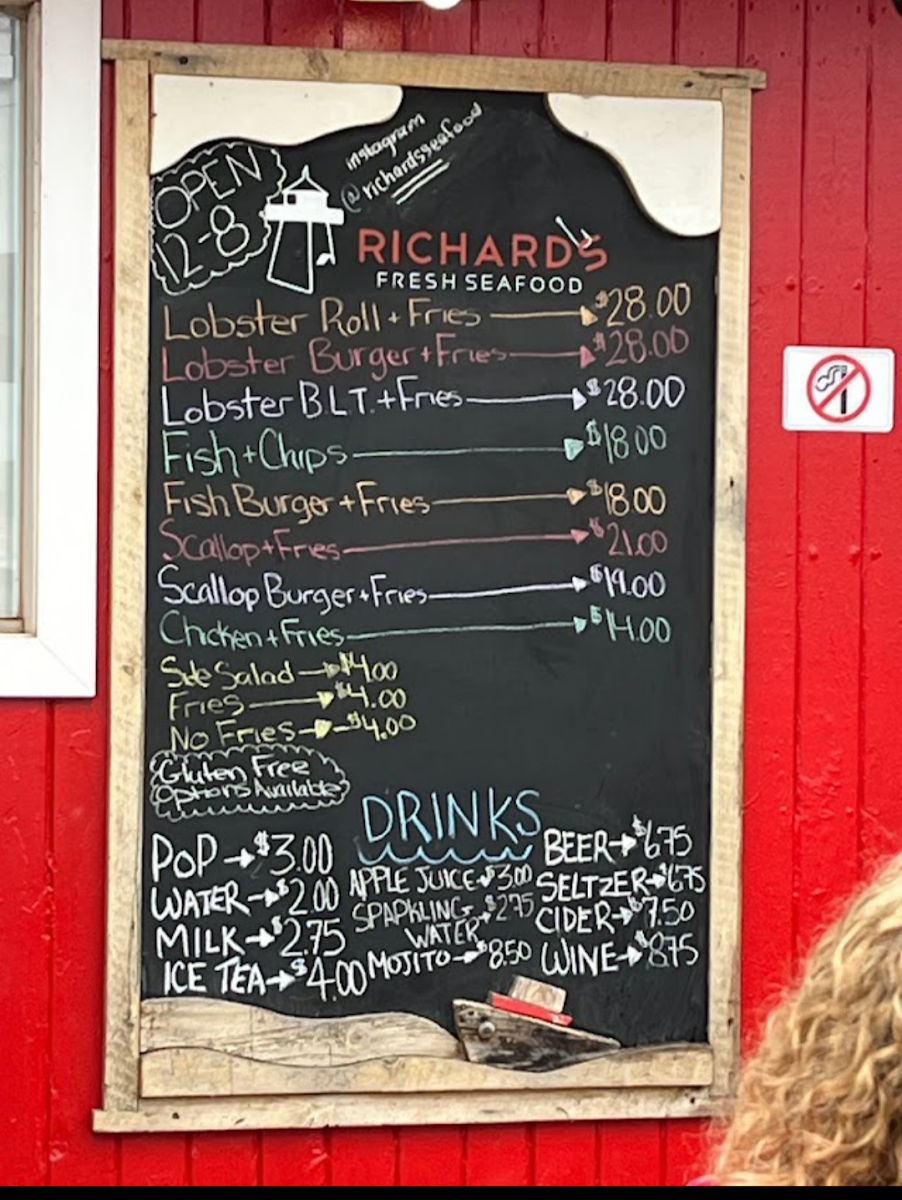 OPEN
12-8
instagram
@richardsseafood
RICHARD'S
FRESH SEAFOOD
Lobster Roll + Fries $28.00
Lobster Burger + Fries $28.00
Lobster B.L.T. + Fries $28.00
Fish + Chips $18.00
Fish Burger + Fries $18.00
Scallop + Fries $21.00
Scallop Burger + Fries $19.00
Chicken + Fries $14.00
Side Salad $4.00
Fries $4.00
No Fries - $4.00
Gluten Free
Options Available
DRINKS
POP $3.00
WATER $2.00
MILK $2.75
ICE TEA $4.00
APPLE JUICE $3.00
SPARKLING $2.75
WATER
MOJITO $8.50
BEER $6.75
SELTZER $6.75
CIDER $7.50
WINE $8.75